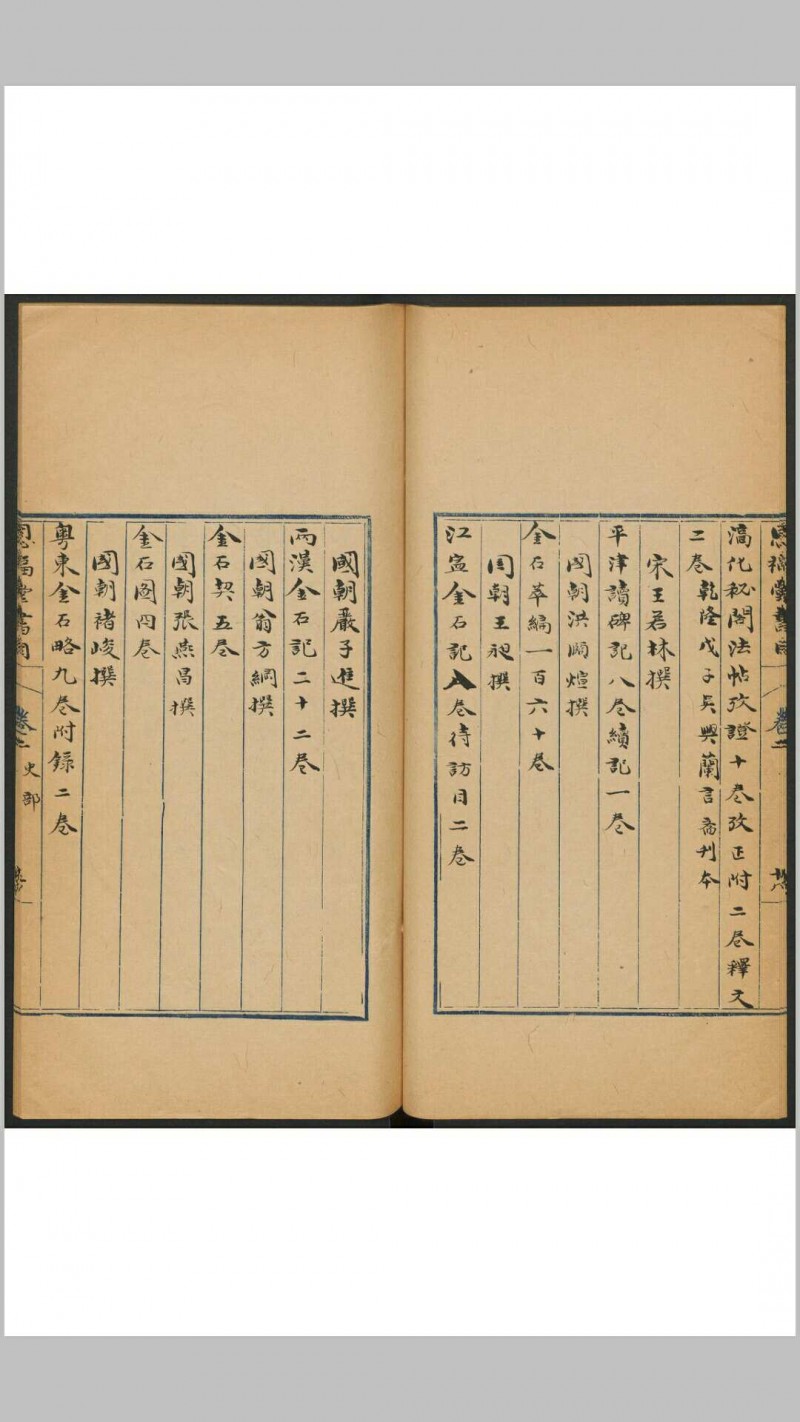 恩福堂書目 卷二
淳化秘閣法帖攷證十卷攷正附二卷釋文
二卷乾隆戊子吳興蘭言齋刊本
宋王若林撰
平津讀碑記八卷續記一卷
國朝洪頤煊撰
金石萃編一百六十卷
國朝王昶撰
江寍金石記八卷待訪目二卷
國朝嚴子進撰
兩漢金石記二十二卷
國朝翁方綱撰
金石契五卷
國朝張燕昌撰
金石圖四卷
國朝褚峻撰
粤東金石略九卷附錄二卷
恩福堂書目 卷二 史部